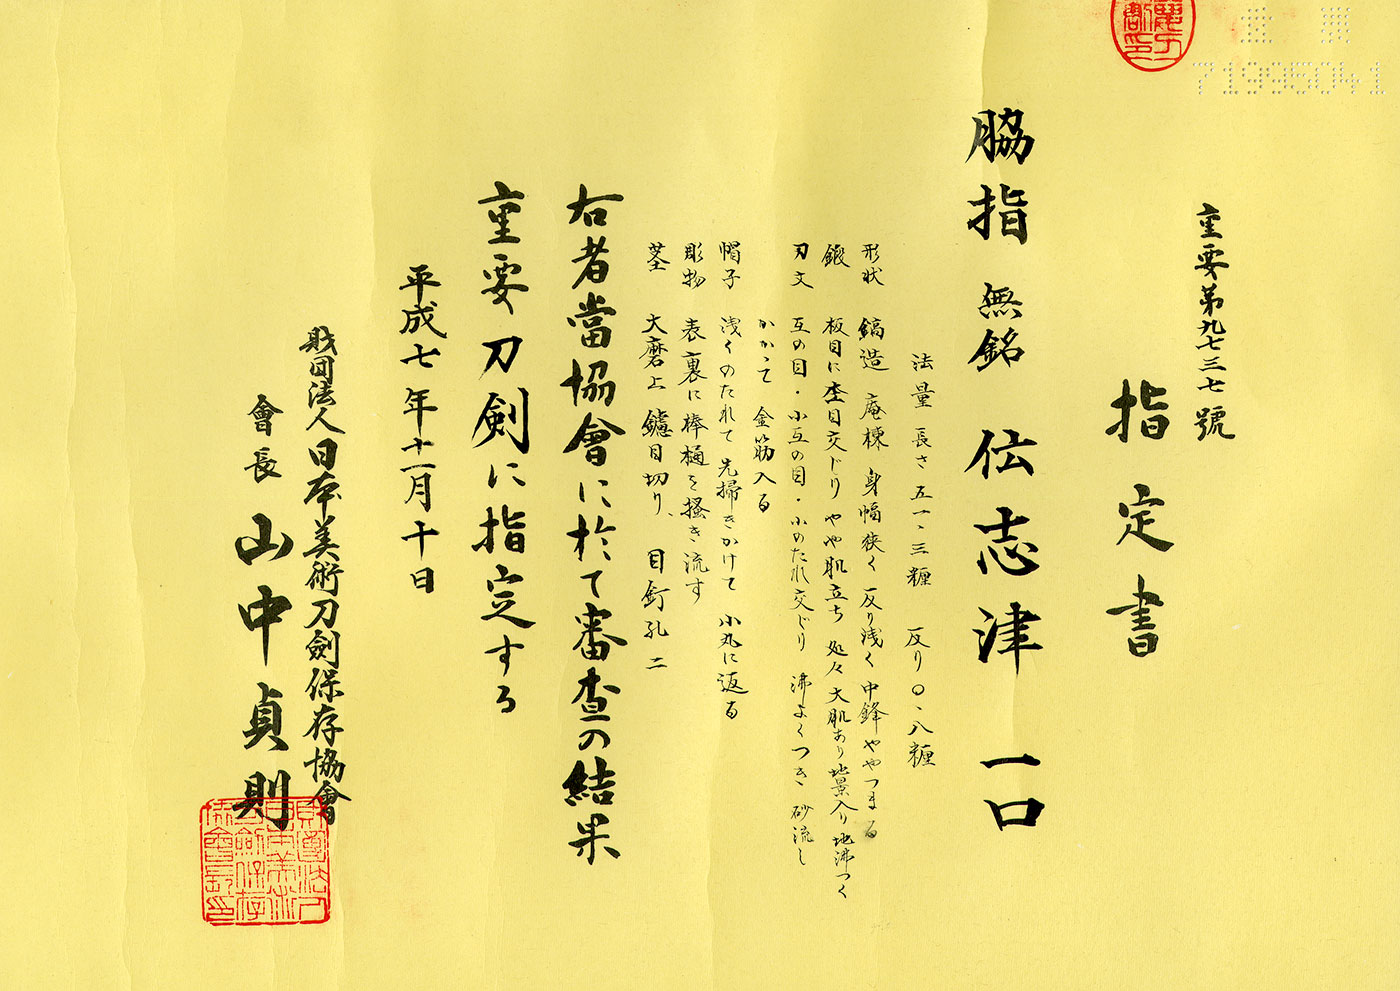 重要第九七三七號
指定書
脇指 無銘 伝志津 一口
法量 長さ 五一・三糎 反り 〇・八糎
形状 鎬造 庵棟 身幅狭く 反り浅く 中鋒ややつまる
鍛 板目に杢目交じり やや肌立ち 処々大肌あり 地景入り 地沸つく
刃文 互の目・小互の目・小のたれ交じり 沸よくつき 砂流し
かかって 金筋入る
帽子 浅くのたれて 先掃きかけて 小丸に返る
彫物 表裏に棒樋を掻き流す
茎 大磨上 鑢目切り、目釘孔二
右者當協會に於て審査の結果
重要刀剣に指定する
平成七年十一月十日
財団法人日本美術刀劍保存協會
會長 山中貞則
71995041